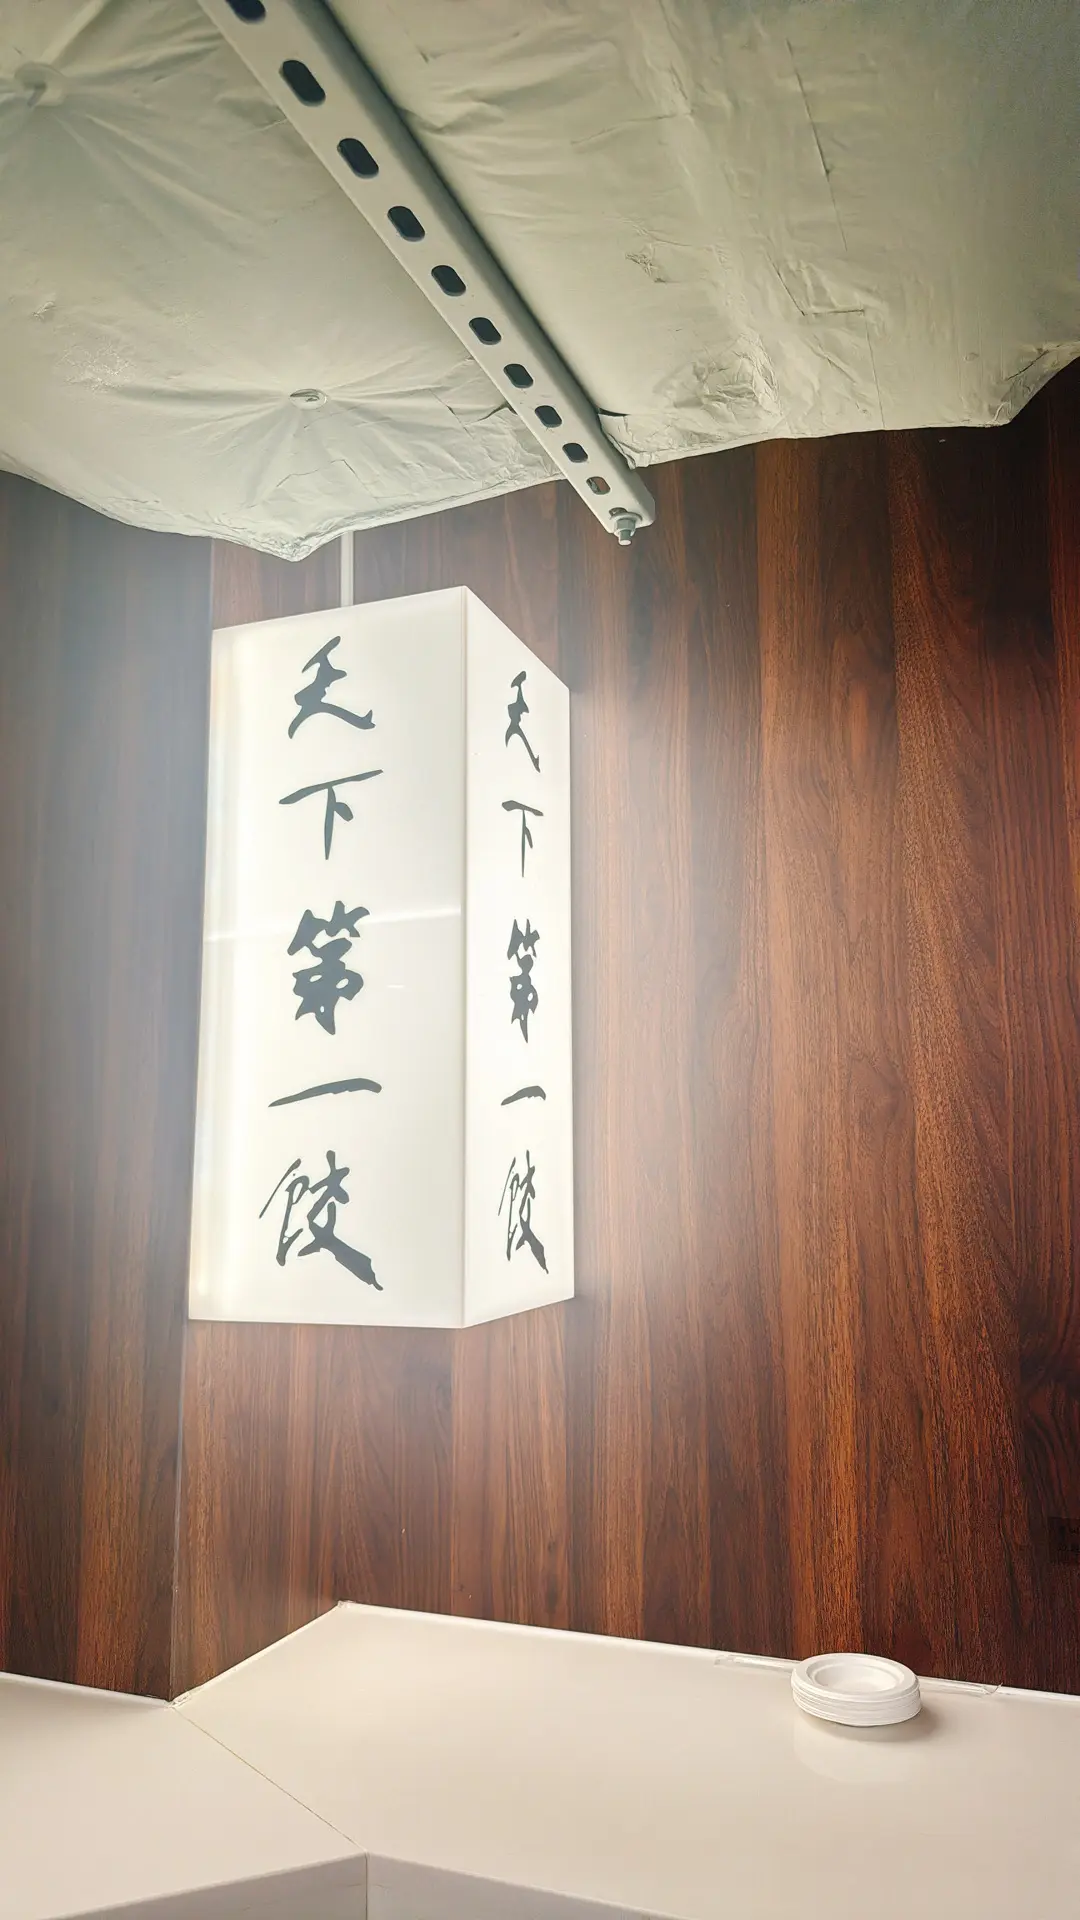 天下第一餃
天下第一餃